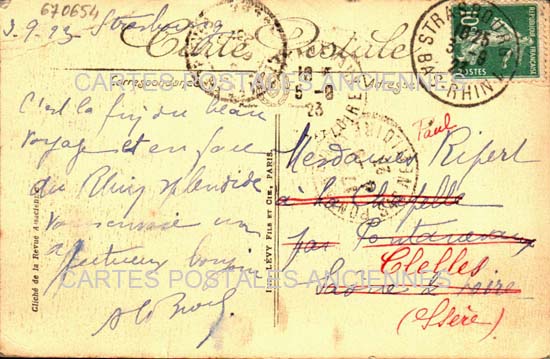 670654
3.9.23 Strasbourg
Carte Postale
Correspondance
Adresse
STRASBOURG
BAS-RHIN
10
POSTES
18
5-9
23
LOIRE
CARTES POSTALES ANCIENNES
C'est la fin du beau
voyage et en face
du Rhin splendide
vous envoie un
affectueux bonjour
Paul
Mesdames Ripert
à La Chapelle
par Pontanevaux
Clelles
Saône & Loire
(Isère)
CARTES POSTALES ANCIENNES
Cliché de la Revue
LÉVY FILS ET CIE, PARIS